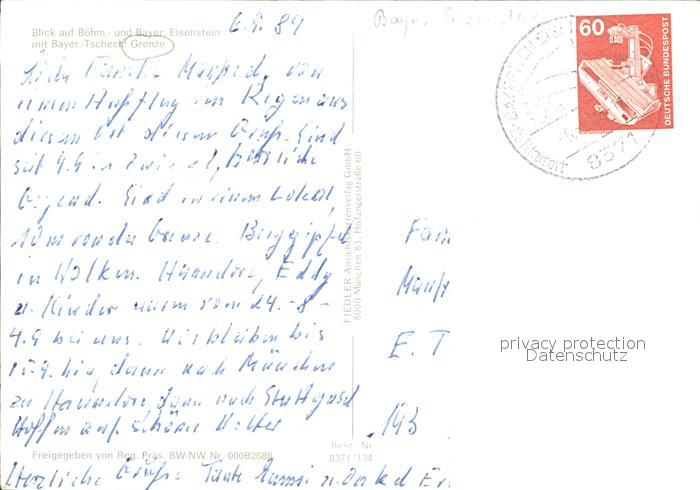 6.9.89
Bayer. Eisenstein
Blick auf Böhm.- und Bayer. Eisenstein
mit Bayer.-Tschech. Grenze
60
DEUTSCHE BUNDESPOST
8371
Liebe Familie Manfred, von
einem Ausflug im Regen aus
diesem Ort diesen Gruß. Sind
seit 4.9. in Zwiesel, herrliche
Gegend. Sind in einem Lokal,
10 m von der Grenze. Berggipfel
in Wolken. Hannelore, Eddy
u. Kinder waren vom 24.-8-
4.9 bei uns. Wir bleiben bis
15.9. hier dann nach München
zu Hannelore dann nach Stuttgart
Hoffen auf schönes Wetter
Herzliche Grüße Tante u. Onkel
FIEDLER Ansichtskartenverlag GmbH
8000 München 83, Hofangerstraße 60
Fam
Manfr
E. T
193
privacy protection
Datenschutz
Best.-Nr
8371 134
Freigegeben von Reg. Präs. BW-NW Nr. 000B2688